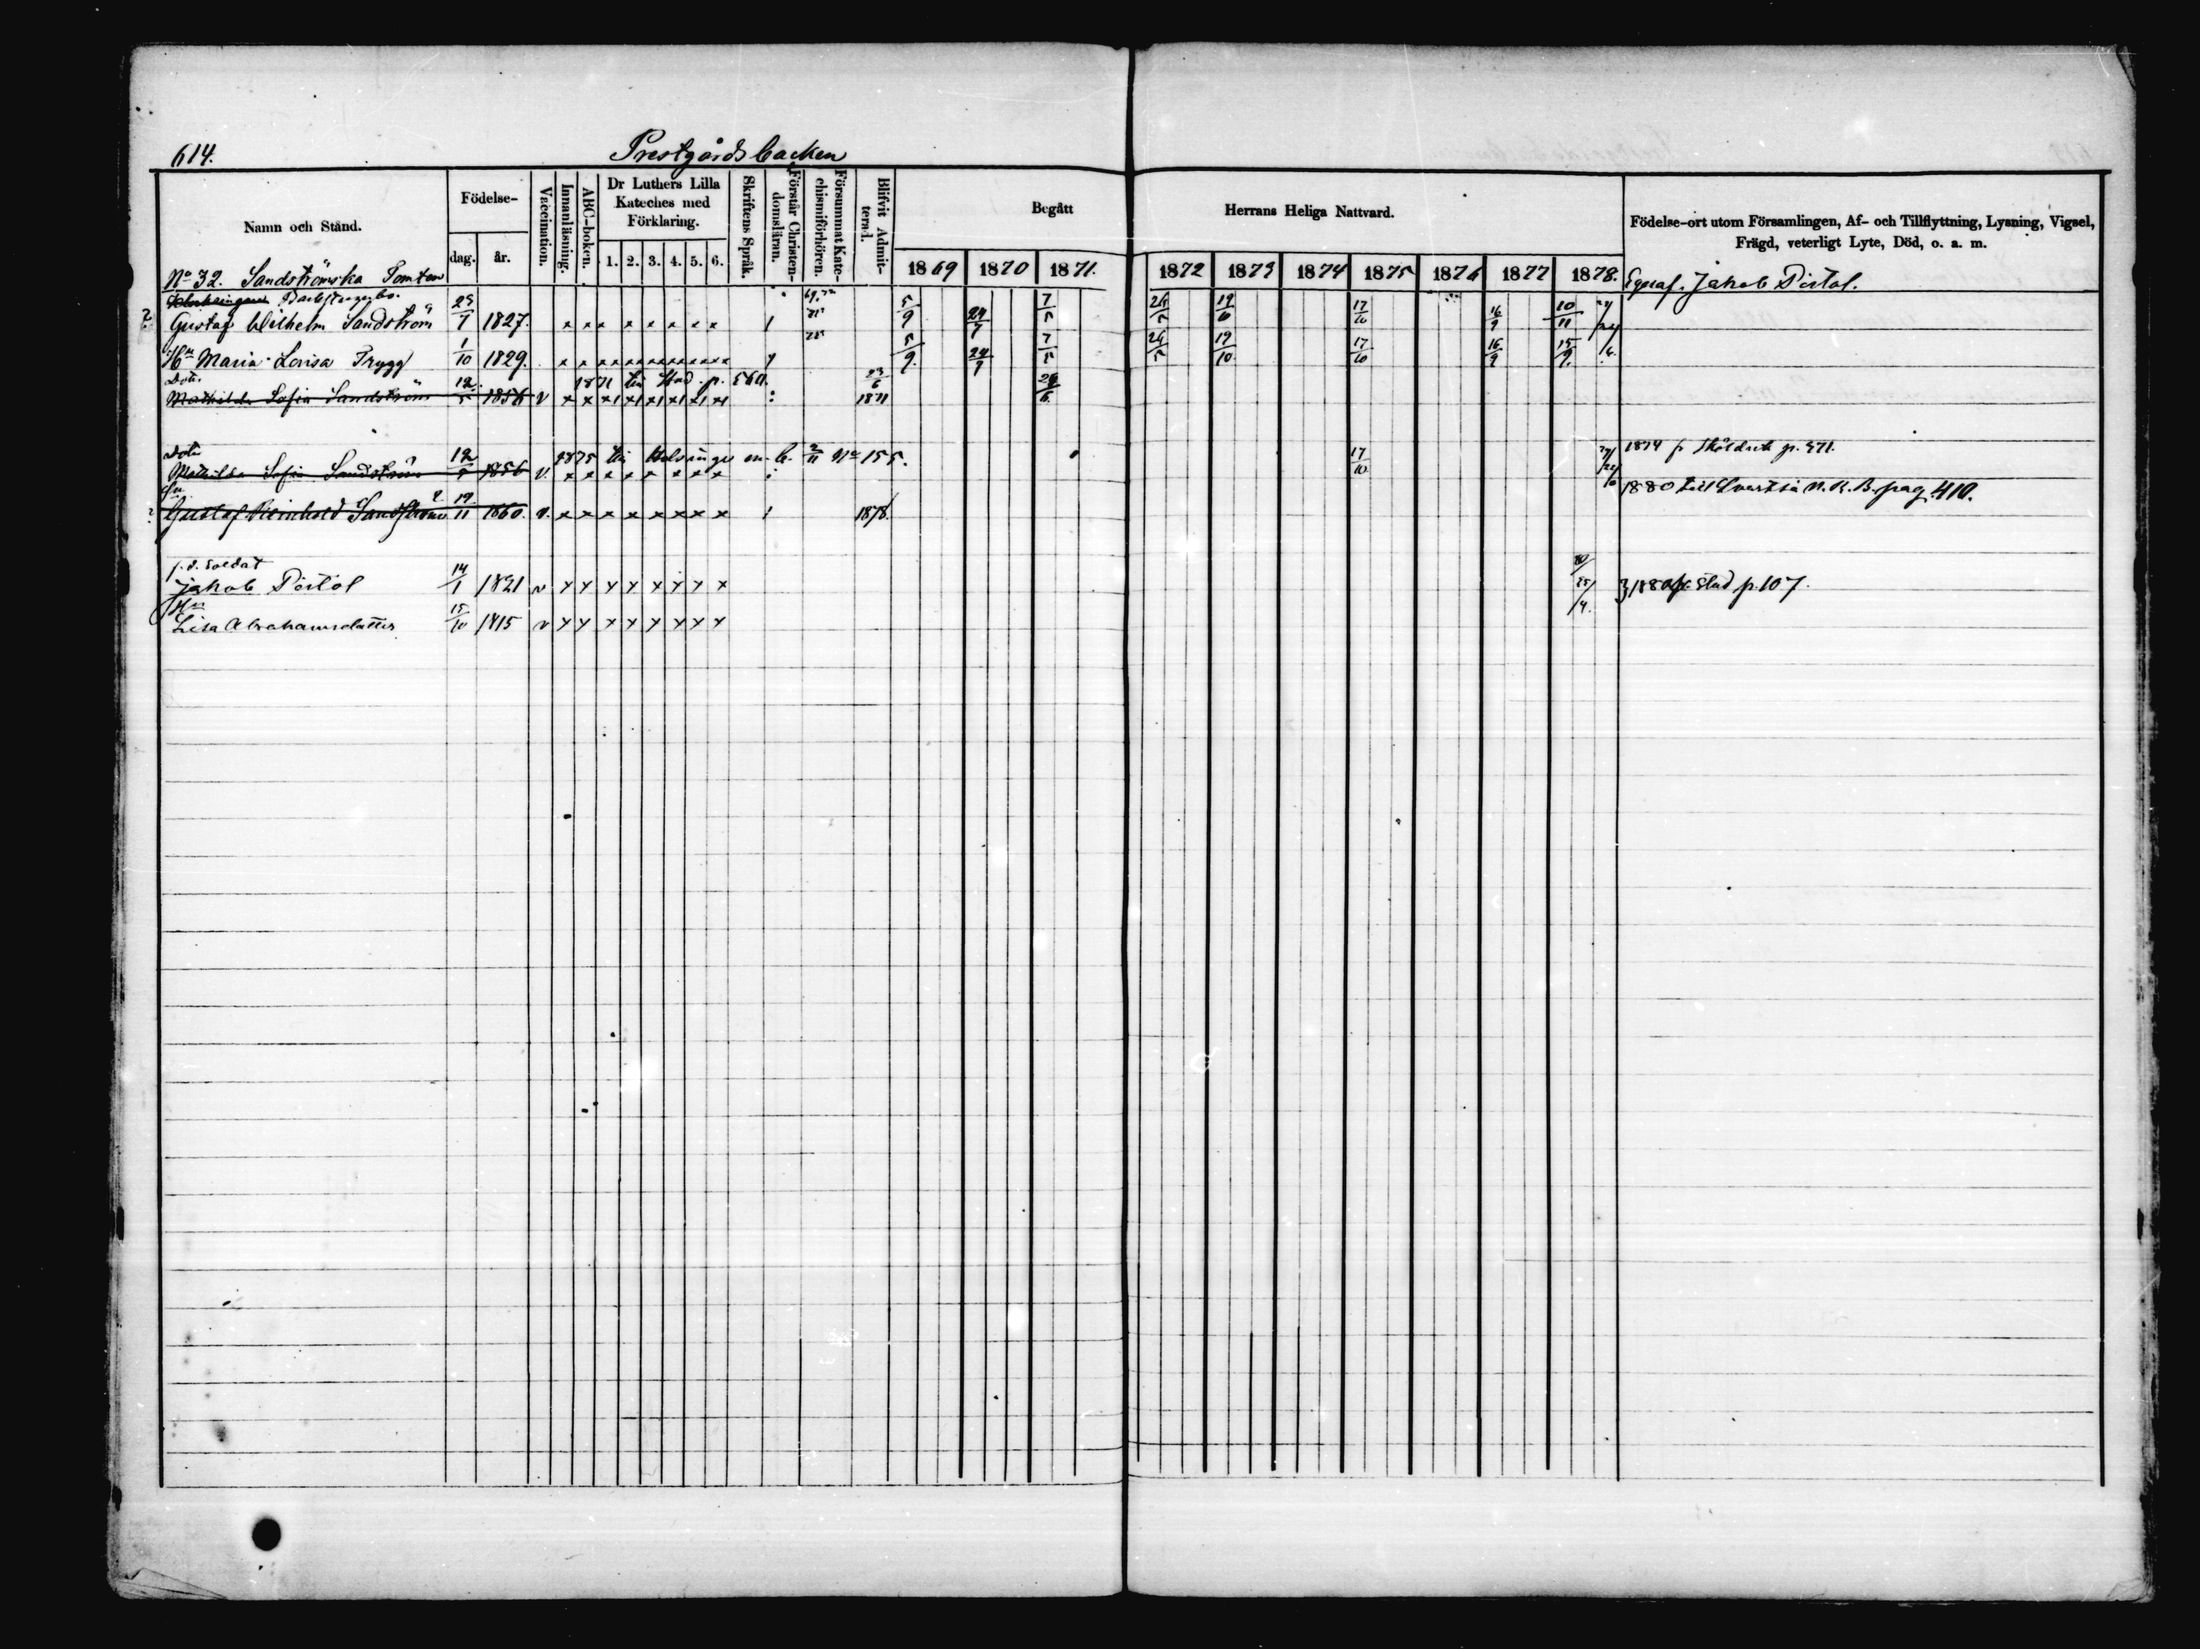 614.
Prestgårdsbacken
Namn och Stånd.
Födelse-
dag.
år.
Vaccination.
Innanläsning.
ABC-boken.
Dr Luthers Lilla
Kateches med
Förklaring.
1. 2. 3. 4. 5. 6.
Skriftens Språk.
Förstår Christen-
domsläran.
Försummat Kate-
chismiförhören.
Blifvit Admit-
terad.
Begått
Herrans Heliga Nattvard.
1869 1870 1871. 1872 1873 1874 1875 1876 1877 1878.
Födelse-ort utom Församlingen, Af- och Tillflyttning, Lysning, Vigsel,
Frägd, veterligt Lyte, Död, o. a. m.
No 32. Sandströmska Tomten
Egnaf. Jakob Pistol.
Gustaf Wilhelm Sandström 25/7 1827. x x x x x x x x 5/9 24/7 7/5 26/5 19/10 17/10 16/9 10/11
Hu Maria Lovisa Trygg 1/10 1829. x x x x x x x x x x x 5/9 24/7 7/5 26/5 19/10 17/10 16/9 15/9
Dotr 1871 till Stad p. 560.
Mathilda Sofia Sandström 12/5 1856 v 1871
Dotr 1875 till Helsinge m. b. 2/11 No 155. 17/10 1874 fr Sköldvik p. 371.
Mathilda Sofia Sandström 12/5 1856 v. x x x x x x x x
1880 till Svartså N. K. B. pag. 410.
Gustaf Reinhold Sandström 19/11 1860. v. x x x x x x x x 1878.
f. d. Soldat
Jakob Pistol 14/1 1821 v x x x x x x x x } 1880 fr. Stad p. 107.
Hu
Lisa Abrahamsdotter 15/10 1815 v x x x x x x x x